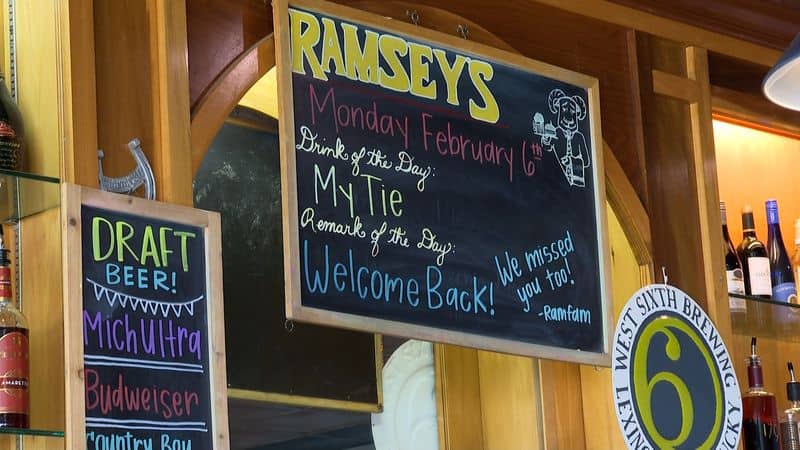 RAMSEY'S
Monday February 6th
Drink of the Day:
My Tie
Remark of the Day:
Welcome Back!
We missed
you too!
-Ramfam
DRAFT
BEER!
Mich Ultra
Budweiser
Country Boy
WEST SIXTH BREWING
LEXINGTON, KENTUCKY
6
AMARETTO